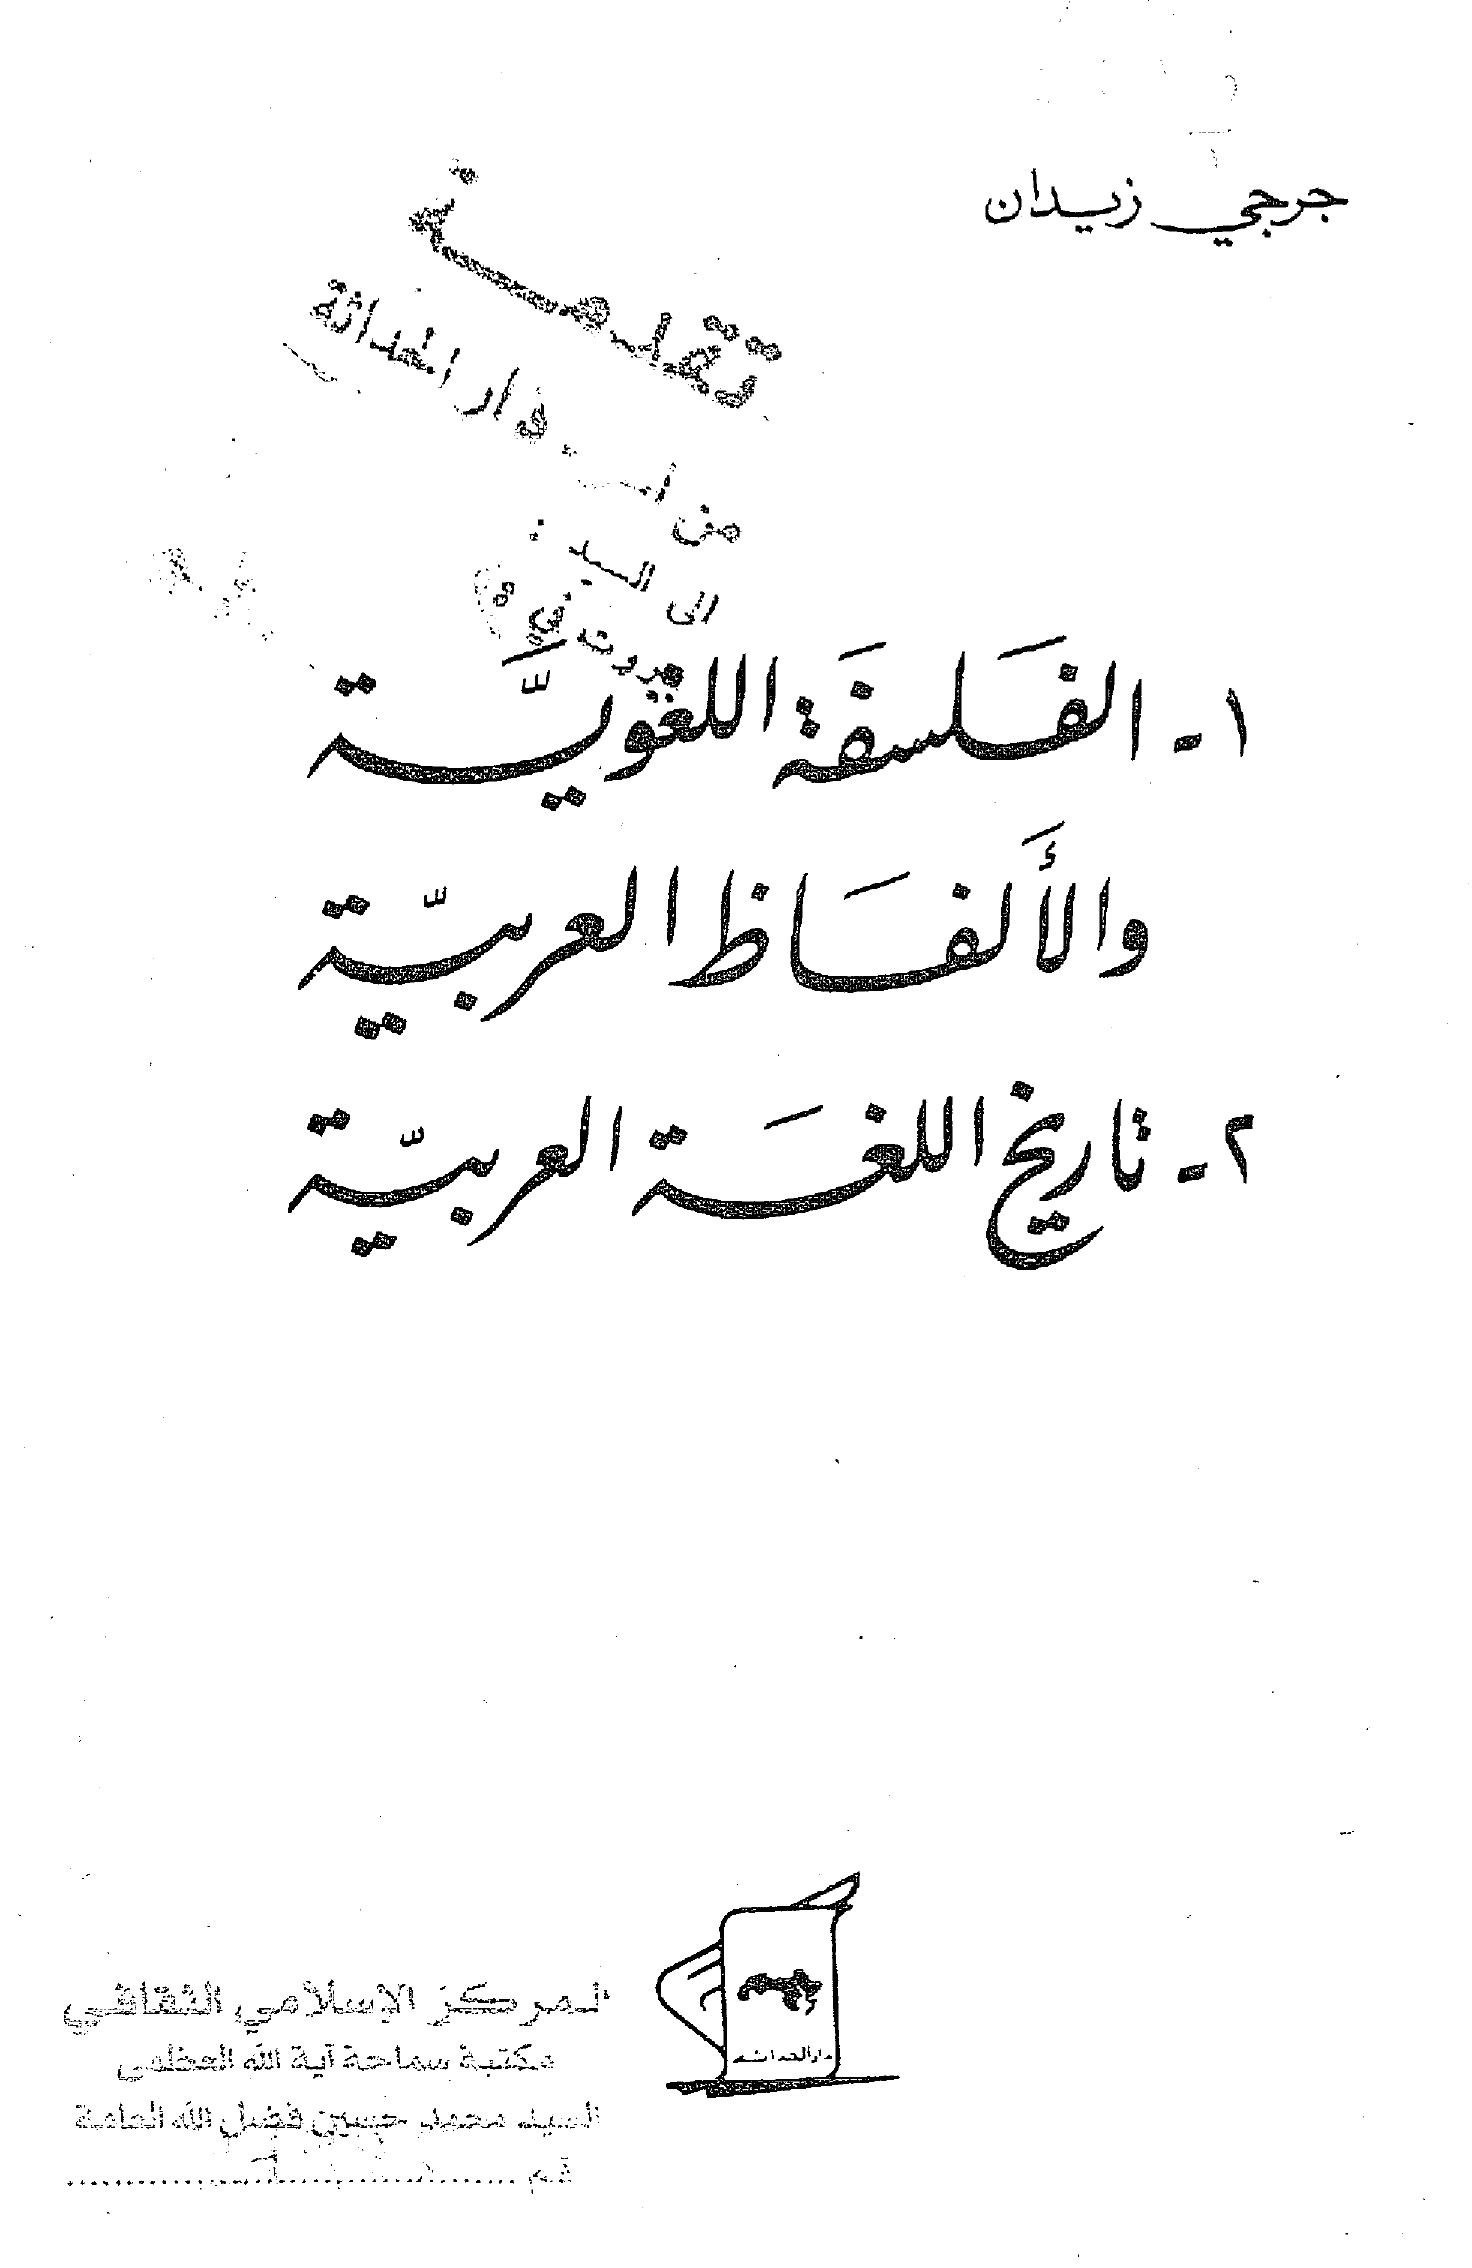 جرجي زيدان
تقدمة
من دار الحداثة
الى السيد
١- الفَلسفَة اللغويَّة
والأَلفَاظ العربيّة
٢- تاريخ اللغَة العربيّة
دار الحداثة
المركز الإسلامي الثقافي
مكتبة سماحة آية الله العظمى
السيد محمد حسين فضل الله العامة